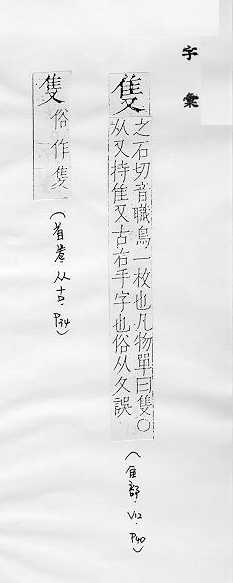 字彙
隻 之石切音職鳥一枚也凡物單曰隻○
从又持隹又古右手字也俗从久誤
(隹部.V12.P40)
隻 俗作隻
(首卷.从古.P34)